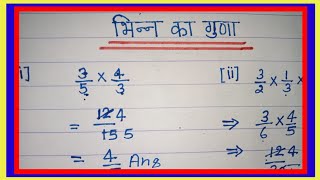 भिन्न का गुणा
i] 3/5 × 4/3
= 12/15 4/5
= 4 Ans
[ii] 3/2 × 1/3 ×
⇒ 3/6 × 4/5
⇒ 12 4